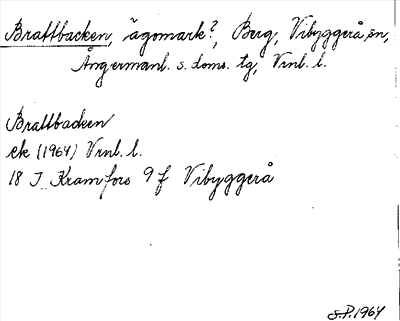 Brattbacken, ägomark?, Berg, Vibyggerå sn,
Ångermanl. s. doms. tg, Vrnl. l.
Brattbacken
ek (1964) Vrnl. l.
18 I Kramfors 9 f Vibyggerå
S.P. 1964